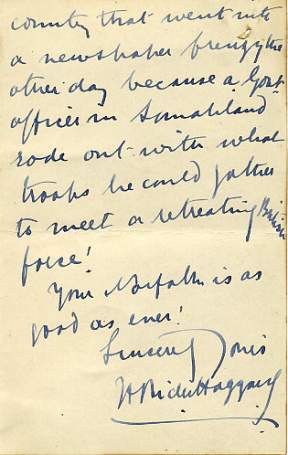 country that went into
a newspaper frenzy the
other day because a Govt
officer in Somaliland
rode out with what
troops he could gather
to meet a retreating British
force!
Your is as
good as ever!
Sincerely Yours
H Rider Haggard